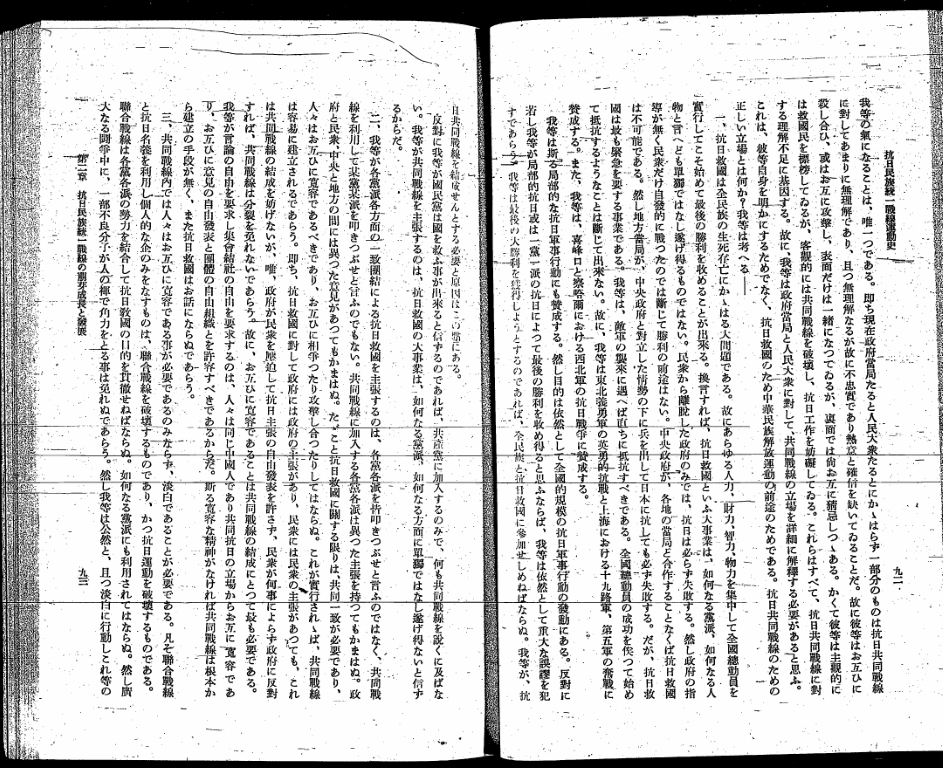 抗日民族統一戰線運動史
九二
我等の氣になることは、唯一つである。即ち現在政府當局たると人民大衆たるとにかゝはらず一部分のものは抗日共同戰線
に對してあまりに無理解であり、且つ無理解なるが故に不忠實であり熱意と確信を缺いてゐることだ。故に彼等はお互ひに
殺し合ひ、或はお互に攻擊し、表面だけは一緖になつてゐるが、裏面では尙お互に猜忌しつゝある。かくて彼等は主觀的に
は救國民を標榜してゐるが、客觀的には共同戰線を破壞し、抗日工作を妨礙してゐる。これらはすべて、抗日共同戰線に對
する理解不足に基因する。故に我等は政府當局と人民大衆に對して、共同戰線の立場を詳細に解釋する必要があると思ふ。
これは、彼等自身を明かにするためでなく、抗日救國のため中華民族解放運動の前途のためである。抗日共同戰線のための
正しい立場とは何か？我等は考へる――
一、抗日救國は全民族の生死存亡にかゝはる大問題である。故にあらゆる人力、財力、智力、物力を集中して全國總動員を
實行してこそ始めて最後の勝利を收めることが出來る。換言すれば、抗日救國といふ大事業は、如何なる黨派、如何なる人
物と言へども單獨ではなし遂げ得るものではない。民衆から離脫した政府のみでは、抗日は必らず失敗する。然し政府の指
導が無く民衆だけ自發的に戰つたのでは斷じて勝利の前途はない。中央政府が、各地の當局と合作することなくば抗日救國
は不可能である。然し地方當局が、中央政府と對立した情勢の下に兵を出して日本に抗しても必ず失敗する。だが、抗日救
國は最も緊急を要する事業である。我等は、敵軍の襲來に遇へば直ちに抵抗すべきである。全國總動員の成功を俟つて始め
て抵抗するようなことは斷じて出來ない。故に、我等は東北義勇軍の英勇的抗戰と上海における十九路軍、第五軍の奮戰に
贊成する。また、我等は、喜峰口と察哈爾における西北軍の抗日戰爭に贊成する。
我等は斯る局部的な抗日軍事行動にも贊成する。然し目的は依然として全國的規模の抗日軍事行動の發動にある。反對に
若し我等が局部的抗日或は一黨一派の抗日によつて最後の勝利を收め得ると思ふならば、我等は依然として重大な誤謬を犯
すであらう。我等は最後の大勝利を獲得しようとするのであれば、全民衆を抗日救國に參加せしめねばならぬ。我等が、抗
日共同戰線を結成せんとする必要と原因はこの點にある。
反對に我等が國民黨は國を救ふ事が出來ると信ずるのであれば、共產黨に加入するのみで、何も共同戰線を說くに及ばな
い。我等が共同戰線を主張するのは、抗日救國の大事業は、如何なる黨派、如何なる方面に單獨ではなし遂げ得ないと信ず
るからだ。
二、我等が各黨派各方面の一致團結による抗日救國を主張するのは、各黨各派を皆叩きつぶせと言ふのではなく、共同戰
線を利用して某黨某派を叩きつぶせと言ふのでもない。共同戰線に加入する各黨各派は異つた主張を持つてもかまはぬ。政
府と民衆、中央と地方の間には異つた意見があつてもかまはぬ。たゞこと抗日救國に關する限りは、共同一致が必要であり、
人々はお互ひに寬容であるべきであり、お互ひに相爭つたり攻擊し合つたりしてはならぬ。これが實行されゝば、共同戰線
は容易に建立されるであらう。即ち、抗日救國に對して政府には政府の主張があり、民衆には民衆の主張があつても、これ
は共同戰線の結成を妨げないが、唯、政府が民衆を壓迫して抗日主張の自由發表を許さず、民衆が何事によらず政府に反對
すれば、共同戰線は分裂を免れないであらう。故に、お互ひに寬容であることは共同戰線の結成にとつて最も必要である。
我等が言論の自由を要求し集會結社の自由を要求するのは、人々は同じ中國人であり共同抗日の立場からお互に寬容であ
り、お互ひに意見の自由發表と團體の自由組織とを許容すべきであるからだ。斯る寬容な精神がなければ共同戰線は根本か
ら建立の手段が無く、また抗日救國はお話にならぬであらう。
三、共同戰線內では人々はお互ひに寬容である事が必要であるのみならず、淡白であることが必要である。凡そ聯合戰線
と抗日名義を利用し個人的な企のみをなすものは、聯合戰線を破壞するものであり、かつ抗日運動を破壞するものである。
聯合戰線は各黨各派の勢力を結合して抗日救國の目的を貫徹せねばならぬ。如何なる黨派にも利用されてはならぬ。然し廣
大なる鬪爭中に、一部不良分子が人の褌で角力をとる事は免れぬであらう。然し我等は公然と、且つ淡白に行動しこれ等の
第二章 抗日民族統一戰線の形成成長と發展
九三